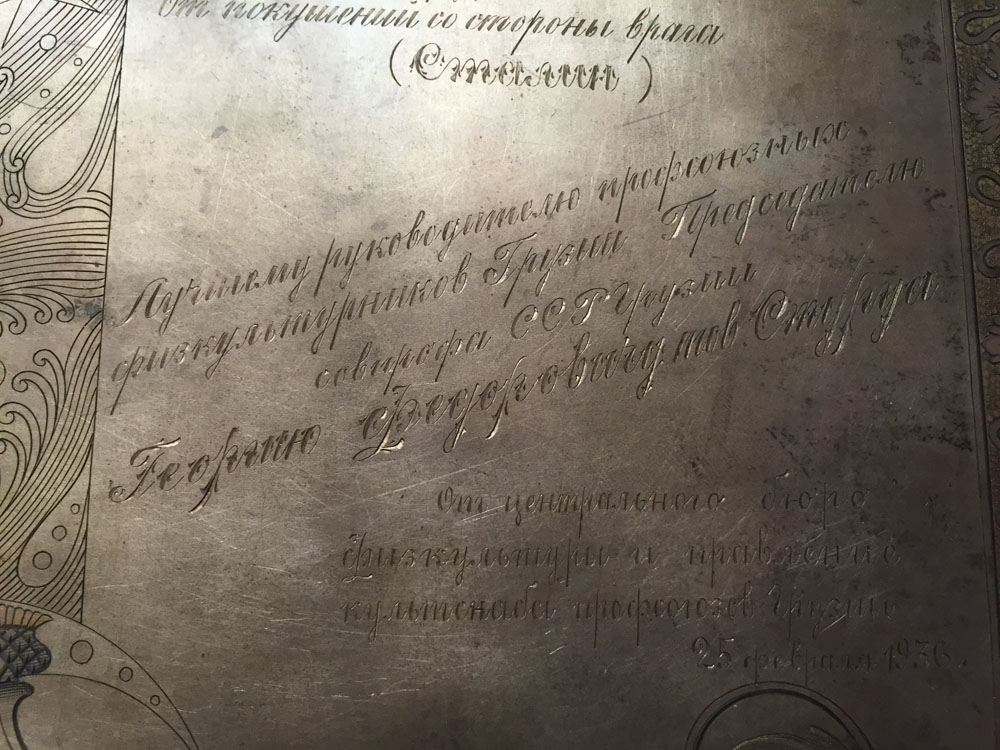 от покушений со стороны врага
(Сталин)
Лучшему руководителю профсоюзных
физкультурников Грузии Председателю
совпрофа ССР Грузии
Георгию Федоровичу тов. Стуруа
От центрального бюро
физкультуры и правление
культснаба профсоюзов Грузии
25 февраля 1936.